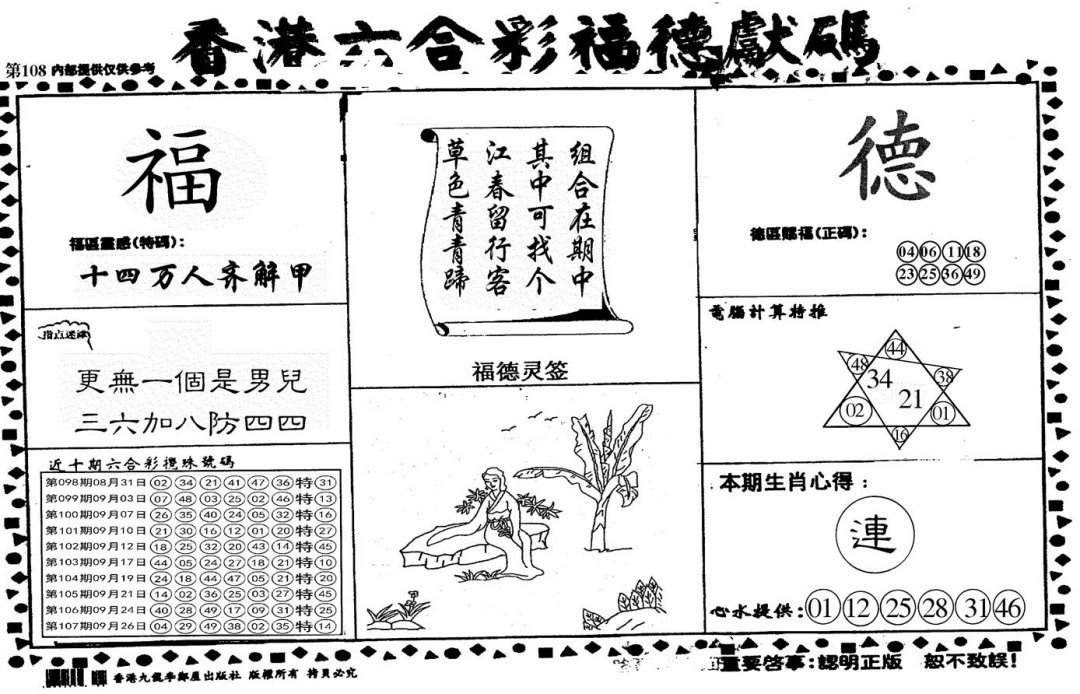 香港六合彩福德獻碼
第108 内部提供仅供参考
福
福區靈感(特碼):
十四万人齐解甲
指点迷津
更無一個是男兒
三六加八防四四
近十期六合彩攪珠號碼
第098期08月31日 02 34 21 41 47 36 特 31
第099期09月03日 07 48 03 25 02 46 特 13
第100期09月07日 26 35 40 24 05 32 特 16
第101期09月10日 21 30 16 12 01 20 特 27
第102期09月12日 18 25 32 20 43 14 特 45
第103期09月17日 44 05 24 27 18 21 特 10
第104期09月19日 24 18 44 47 05 21 特 20
第105期09月21日 14 02 36 25 03 27 特 45
第106期09月24日 40 28 49 17 09 31 特 25
第107期09月26日 04 29 49 38 02 35 特 14
组合在期中
其中可找个
江春留行客
草色青青蹄
福德灵签
德
德區賜福(正碼):
04 06 11 18
23 25 36 49
電腦計算特推
44
48
38
34
21
02
01
16
本期生肖心得:
連
心水提供: 01 12 25 28 31 46
香港九龍李鄭屋出版社 版權所有 拷貝必究
重要啓事:認明正版 恕不致誤!